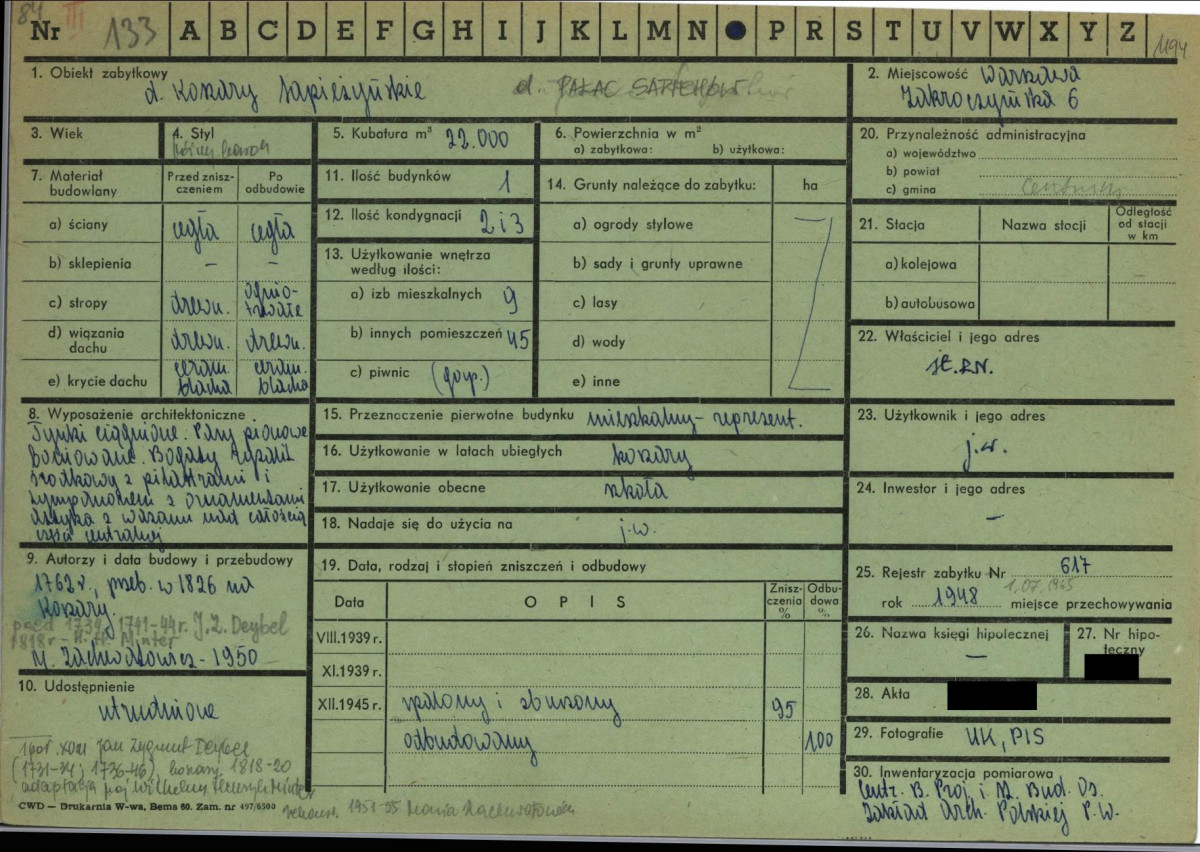 84 III
Nr 133 A B C D E F G H I J K L M N P R S T U V W X Y Z 1194
1. Obiekt zabytkowy
d. Koszary Sapieżyńskie d. PAŁAC SAPIEHÓW
2. Miejscowość Warszawa
Zakroczymska 6
3. Wiek
4. Styl
późny barok
5. Kubatura m³ 22.000
6. Powierzchnia w m²
a) zabytkowa: b) użytkowa:
20. Przynależność administracyjna
a) województwo
b) powiat
c) gmina
7. Materiał budowlany
Przed znisz-
czeniem
Po
odbudowie
a) ściany cegła cegła
b) sklepienia – –
c) stropy drewn. ognio-
trwałe
d) wiązania
dachu drewn. drewn.
e) krycie dachu ceram. blacha ceram. blacha
11. Ilość budynków 1
12. Ilość kondygnacji 2 i 3
13. Użytkowanie wnętrza
według ilości:
a) izb mieszkalnych 9
b) innych pomieszczeń 45
c) piwnic (gosp.)
14. Grunty należące do zabytku: ha
a) ogrody stylowe
b) sady i grunty uprawne
c) lasy
d) wody
e) inne
21. Stacja Nazwa stacji Odległość
od stacji
w km
a) kolejowa
b) autobusowa
22. Właściciel i jego adres
St.R.N.
8. Wyposażenie architektoniczne
Tynki ciągnione. Pasy pionowe
boniowane. Bogaty ryzalit
środkowy z pilastrami i
tympanonem z ornamentami
Attyka z wazami nad całością
części centralnej
15. Przeznaczenie pierwotne budynku mieszkalny - reprezent.
16. Użytkowanie w latach ubiegłych koszary
17. Użytkowanie obecne szkoła
18. Nadaje się do użycia na j.w.
23. Użytkownik i jego adres
j.w.
24. Inwestor i jego adres
–
9. Autorzy i data budowy i przebudowy
1762 r., przeb. w 1826 na
Koszary.
przed 1739, 1741-44 r. J. Z. Deybel
1818 r - H. Minter
M. Zachwatowicz - 1950
19. Data, rodzaj i stopień zniszczeń i odbudowy
Data OPIS Znisz-
czenia
% Odbu-
dowa
%
VIII.1939 r.
XI.1939 r.
XII.1945 r. spalony i zburzony 95
odbudowany 100
25. Rejestr zabytku Nr 617
1.07.1965
rok 1948 miejsce przechowywania
26. Nazwa księgi hipotecznej
–
27. Nr hipo-
teczny
28. Akta
29. Fotografie UK, PIS
10. Udostępnienie
utrudnione
Jan Zygmunt Deybel
(1731-34; 1736-46), koszary 1818-20
adaptacja Wilhelm Henryk Minter
CWD — Drukarnia W-wa, Bema 60. Zam. nr 497/6500
rekonstr. 1951-55 Maria Zachwatowicz
30. Inwentaryzacja pomiarowa
Centr. B. Proj. i St. Bud. Os.
Zakład Arch. Polskiej P.W.